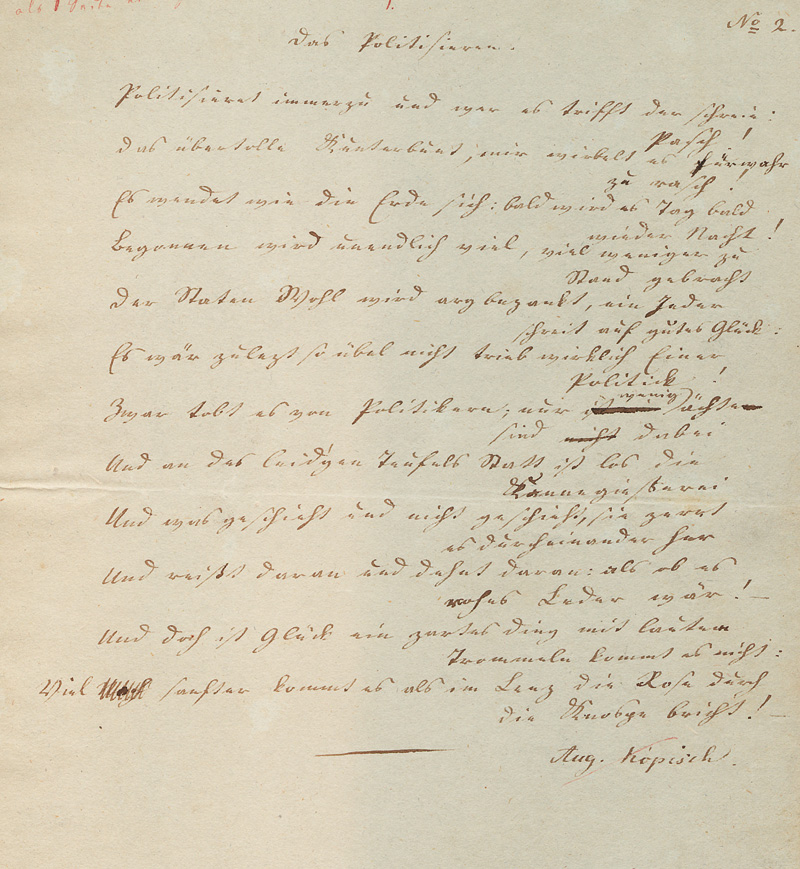 als 1 Seite
No 2.
Das Politisieren.
Politisieret immerzu und wer es trifft der schreie:
Pasch!
Das übertolle Kunterbunt; mir wirbelt es fürwahr
zu rasch!
Es wendet wie die Erde sich: bald wird es Tag bald
wieder Nacht!
Begonnen wird unendlich viel, viel weniger zu
Stand gebracht
Der Staten Wohl wird arg bezankt, ein Jeder
schreit auf gutes Glück:
Es wär zulezt so übel nicht trieb wirklich Einer
Politick!
Zwar tobt es von Politikern, nur wenig ächte
sind nicht dabei
Und an des leid'gen Teufels Statt ist los die
Kannegießerei
Und was geschieht und nicht geschieht, sie zerrt
es durcheinander her
Und reißt daran und dehnt daran: als ob es
rohes Leder wär! –
Und doch ist Glück ein zartes Ding mit lauten
Trommeln kommt es nicht:
Viel sanfter kommt es als im Lenz die Rose durch
die Knospe bricht! –
Aug. Kopisch.